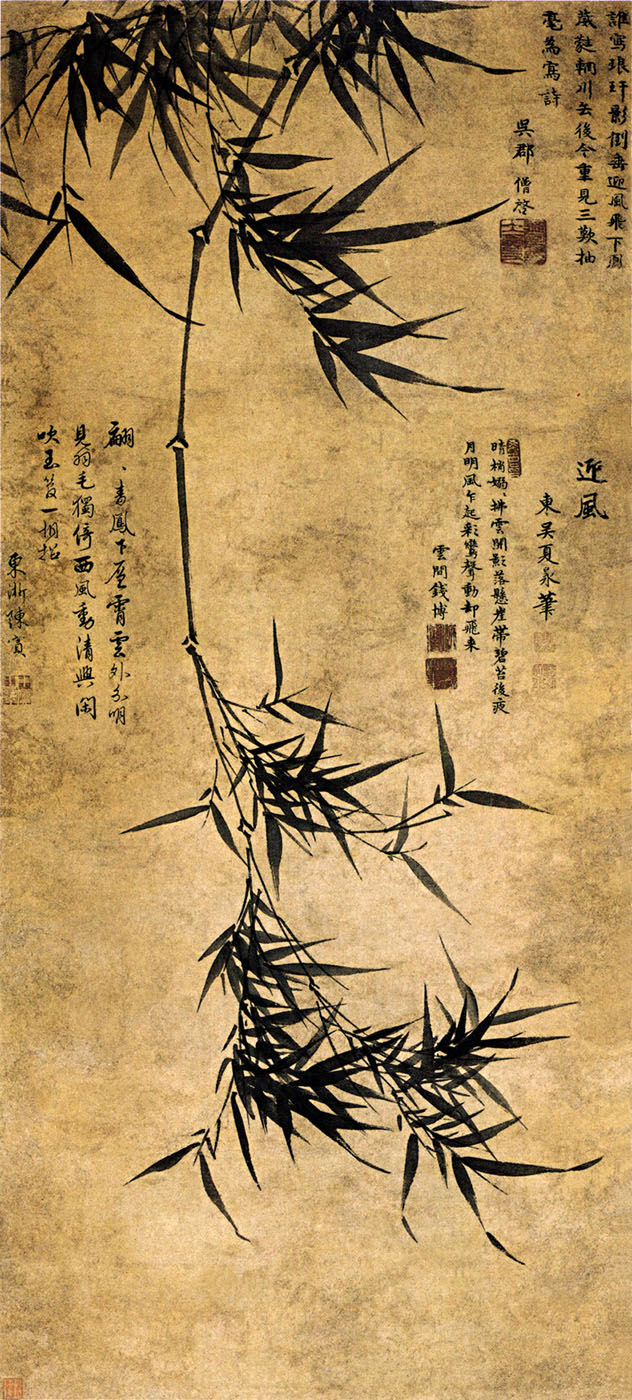 誰寫琅玕影倒垂迎風飛下鳳
葳蕤輞川去後今重見三歎抽
毫為寫詩
吳郡僧啓
迎風
東吳夏㫤筆
晴梢嫋〻拂雲開影落懸崖帶碧苔後夜
月明風乍起彩鸞聲動却飛來
雲間錢博
翩〻青鳳下層霄雲外分明
見羽毛獨倚西風動清興閑
吹玉笙一相招
東浙陳賓